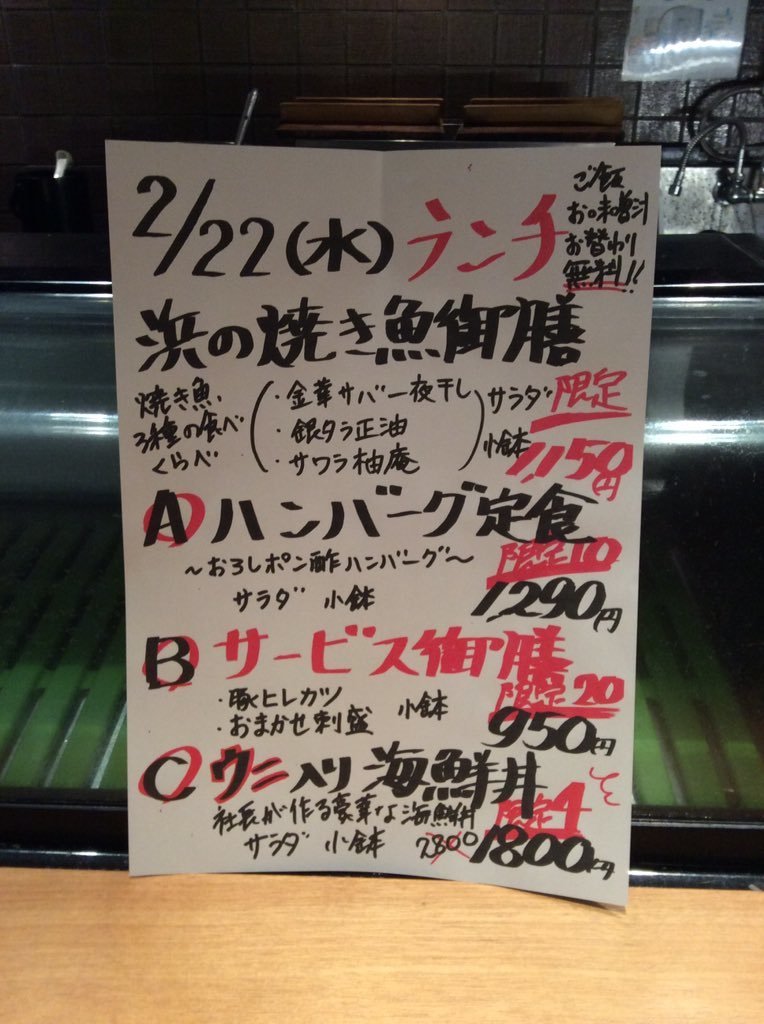 2/22(水) ランチ
ご飯
お味噌汁
お替わり
無料!!
浜の焼き魚御膳
焼き魚、
3種の食べ
くらべ
・金華サバ一夜干し
・銀タラ正油
・サワラ柚庵
サラダ
小鉢
限定
1,150円
A ハンバーグ定食
〜おろしポン酢ハンバーグ〜
限定10
サラダ 小鉢
1290円
B サービス御膳
・豚ヒレカツ
・おまかせ刺盛
小鉢
限定20
950円
C ウニ入り海鮮丼
社長が作る豪華な海鮮丼
限定4
サラダ 小鉢
2800 1800円